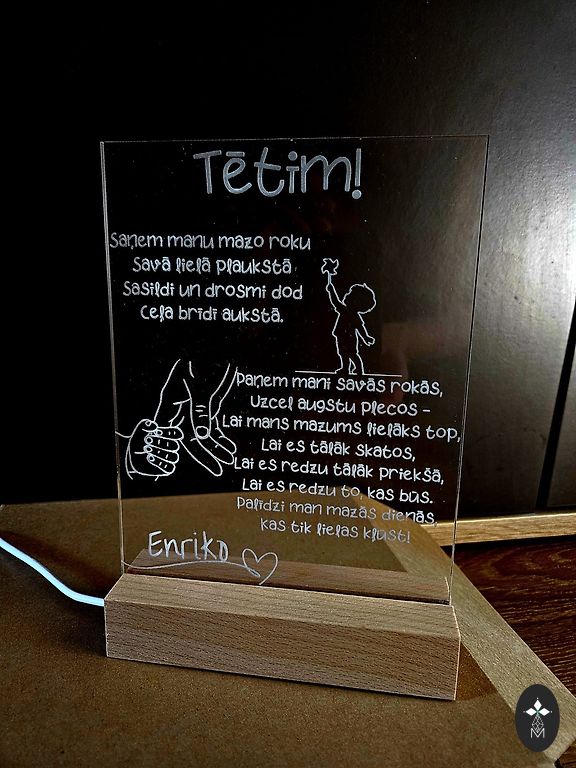 Tētim!
Saņem manu mazo roku
Savā lielā plaukstā
Sasildi un drosmi dod
Ceļa brīdī aukstā.
Paņem mani savās rokās,
Uzcel augstu plecos -
Lai mans mazums lielāks top,
Lai es tālāk skatos,
Lai es redzu tālāk priekšā,
Lai es redzu to, kas būs.
Palīdzi man mazās dienās,
kas tik lielas kļūst!
Enriko
M